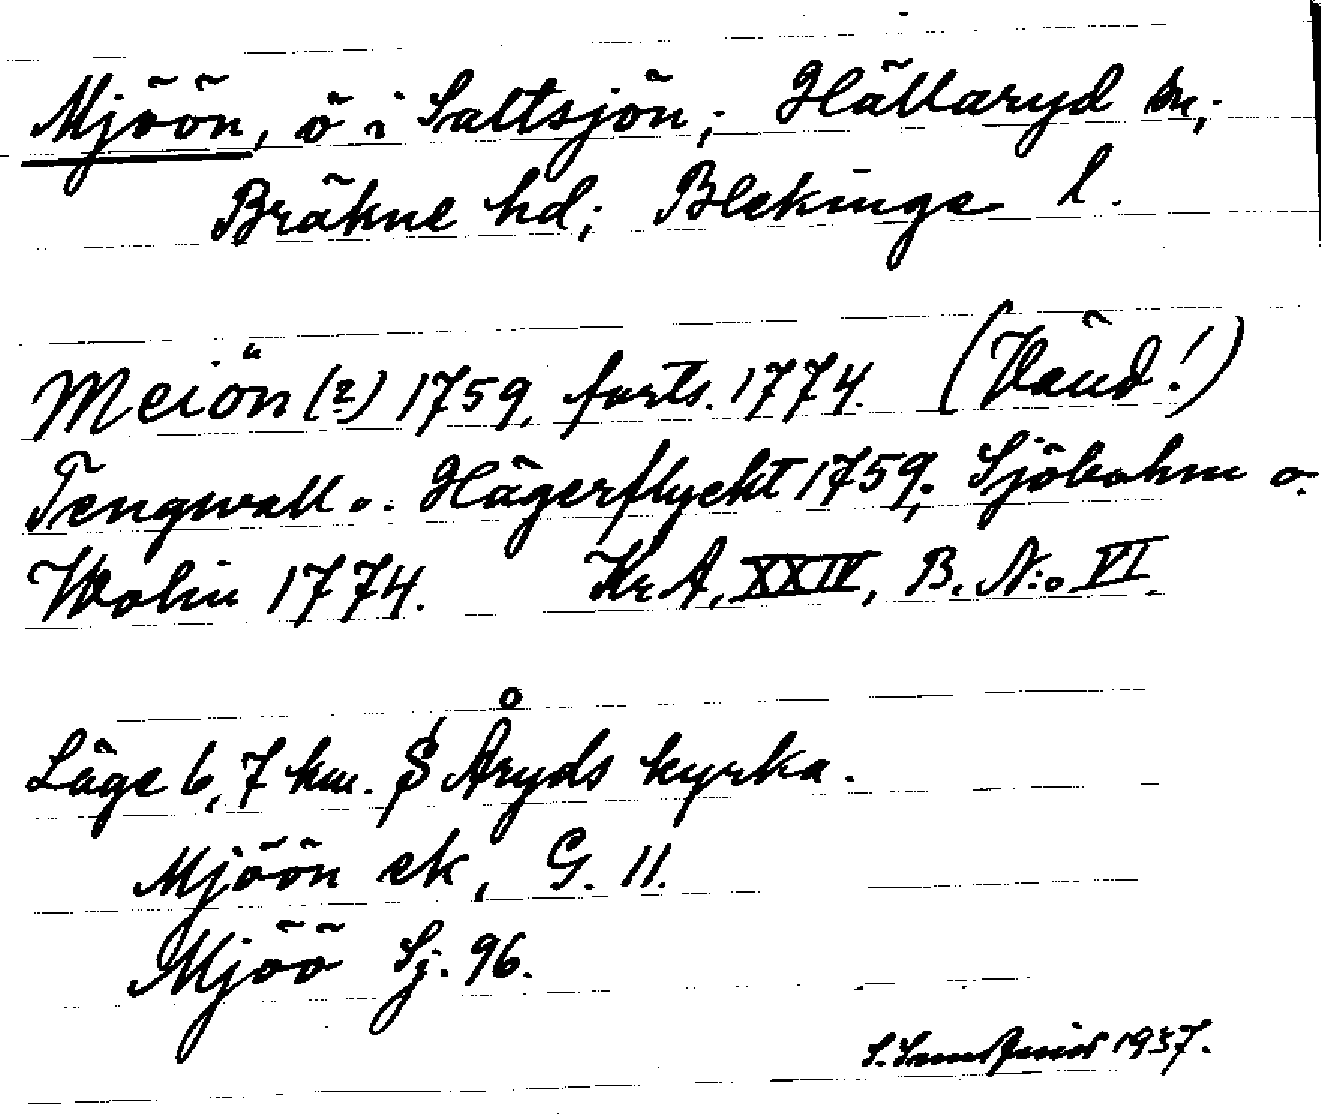 Mjöön, ö i Saltsjön; Hällaryd sn;
Bräkne hd; Blekinge l.
Meiön (?) 1759, forts. 1774. (Vänd!)
Tengwall o. Hägerflycht 1759, Sjöbohm o.
Wolin 1774. Kr. A, XXIV, B. N:o VI.
Läge 6,7 km. S Åryds kyrka.
Mjöön ek, G. 11.
Mjöö Sj. 96.
1937.